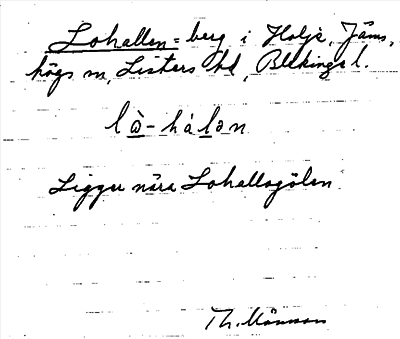 Lohallen = berg i Holje, Jäms-
högs sn, Listers hd, Blekinge l.
lò̲-há l̲ən
Ligger nära Lohallagölen
Th. Månsson